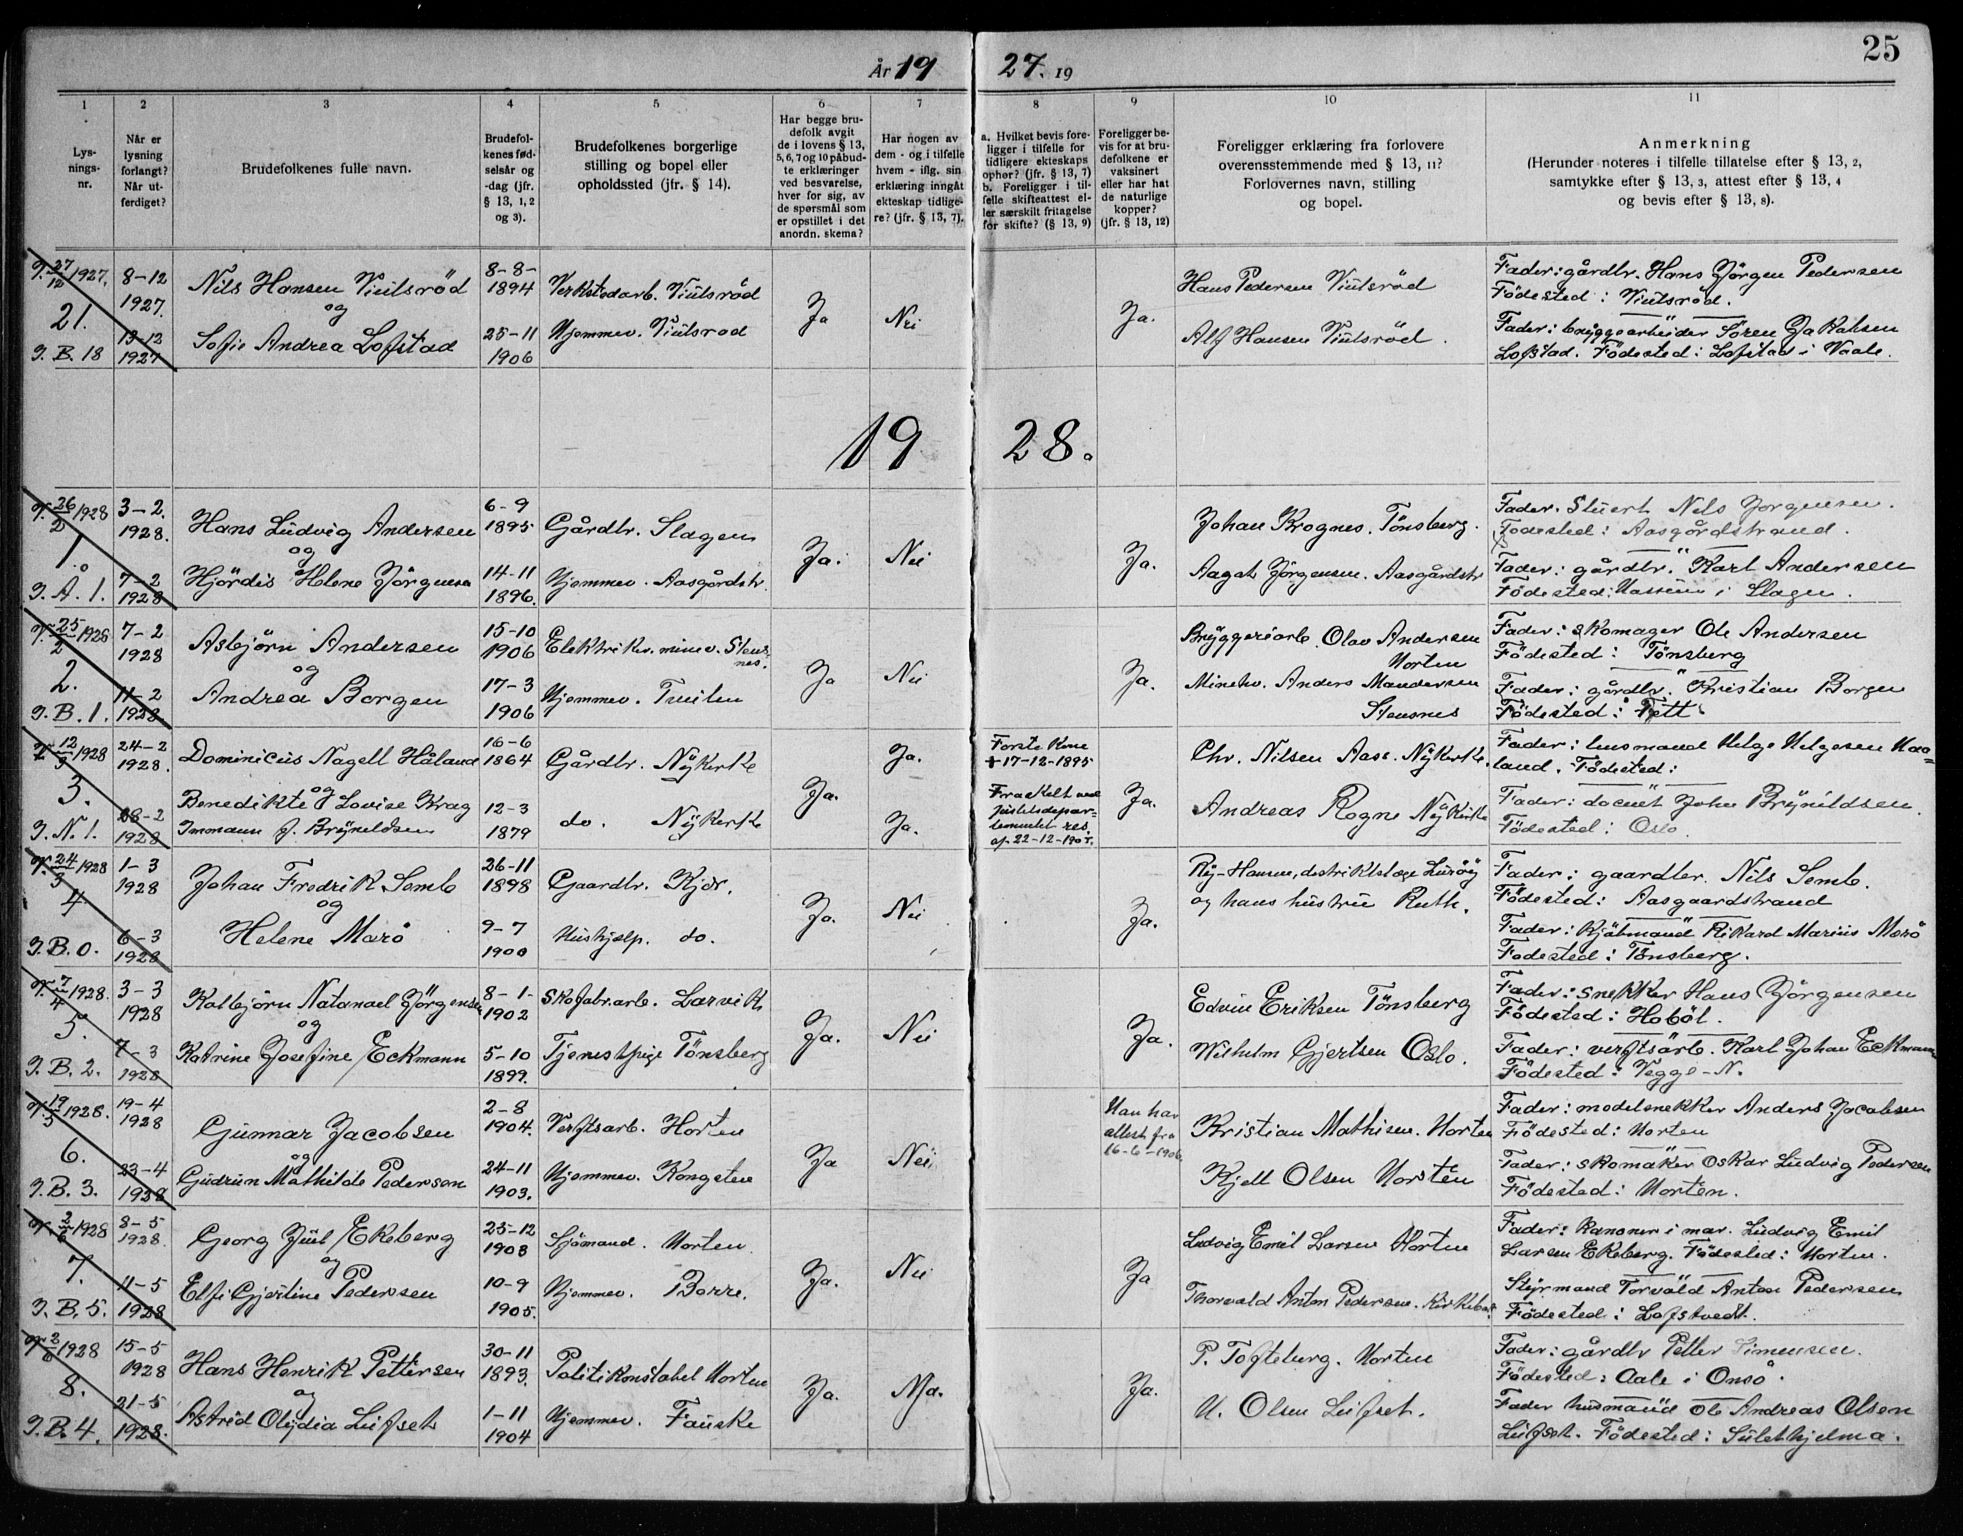 År 19 27. 19
25
1 2 3 4 5 6 7 8 9 10 11
Lys-
nings-
nr.
Når er
lysning
forlangt?
Når ut-
ferdiget?
Brudefolkenes fulle navn.
Brudefol-
kenes fød-
selsår og
-dag (jfr.
§ 13, 1, 2
og 3).
Brudefolkenes borgerlige
stilling og bopel eller
opholdssted (jfr. § 14).
Har begge bru-
defolk avgit
de i lovens § 13,
5, 6, 7 og 10 påbud-
te erklæringer
ved besvarelse,
hver for sig, av
de spørsmål som
er opstillet i det
anordn. skema?
Har nogen av
dem - og i tilfelle
hvem - iflg. sin
erklæring inngåt
ekteskap tidlige-
re? (jfr. § 13, 7).
a. Hvilket bevis fore-
ligger i tilfelle for
tidligere ekteskaps
ophør? (jfr. § 13, 7)
b. Foreligger i til-
felle skifteattest el-
ler særskilt fritagelse
for skifte? (§ 13, 9)
Foreligger be-
vis for at bru-
defolkene er
vaksinert
eller har hat
de naturlige
kopper?
(jfr. § 13, 12)
Foreligger erklæring fra forlovere
overensstemmende med § 13, 11?
Forlovernes navn, stilling
og bopel.
Anmerkning
(Herunder noteres i tilfelle tillatelse efter § 13, 2,
samtykke efter § 13, 3, attest efter § 13, 4
og bevis efter § 13, 8).
V. 27/12 1927.
21.
J. B. 18
8-12
1927.
13-12
1927
Nils Hansen Viulsröd
og
Sofie Andrea Lofstad
8-8-
1894
25-11
1906
Verkstedarb. Viulsröd
Hjemmev. Viulsrød
Ja
Nei
Ja.
Hans Pedersen Viulsröd
Alf Hansen Viulsröd.
Fader: gårdbr. Hans Jörgen Pedersen
Födested: Viulsröd.
Fader: bryggearbeider Sören Jakobsen
Lofstad. Födested: Lofstad i Vaale.
19 28.
V. 26/2 1928
1.
J. Å. 1.
3-2.
1928.
7-2
1928
Hans Ludvig Andersen
og
Hjördis Helene Jörgensen
6-9
1895
14-11
1896.
Gårdbr. Slagen
Hjemmev. Aasgårdstr.
Ja.
Nei
Ja.
Johan Krognes. Tönsberg.
Aagat Jörgensen. Aasgårdstr
Fader. Stuert Nils Jorgensen.
Fodested: Aasgårdstrand.
Fader: gårdbr. Karl Andersen
Födested: i Slagen.
V. 25/2 1928
2.
J. B. 1.
7-2
1928
11-2
1928.
Asbjörn Andersen
og
Andrea Borgen
15-10
1906
17-3
1906
Elektriker. minev. Stens-
nes.
Hjemmev. Tveiten
Ja
Nei
Ja.
Bryggeriarb. Olav Andersen
Horten
Minehv. Anders Mandersen
Stensnes
Fader: skomager Ole Andersen
Födested: Tönsberg
Fader: gårdbr. Kristian Borgen
Födested:
V. 12/3 1928
3.
J. N. 1.
24-2
1928.
28-2
1928
Dominicus Nagell Håland
og
Benedikte Lovise Krag
Immann f. Bryneldsen
16-6
1864
12-3
1879
Gårdbr. Nykirke
do. Nykirke
Ja.
Ja.
Ja.
Forste Kone
† 17-12-1895
Fraskelt ved
Justitsdepar-
tementet res
af 22-12-1905.
Ja.
Chr. Nilsen Aase. Nykirke.
Andreas Rogne Nykirke
Fader: husmand Helge Helgesen Haa-
land. Födested:
Fader: docent John Bryneldsen
Födested: Oslo.
V. 24/3 1928
4.
J. B. 0.
1-3
1928
6-3
1928
Johan Fredrik Semb
og
Helene Marö
26-11
1898
9-7
1900
Gaardbr. Kjær.
Hushjælp. do.
Ja.
Nei
Ja.
Rij-Hansen, destriktslæge Luröy
og hans hustru Ruth.
Fader: gaardbr. Nils Semb.
Födested: Aasgaardstrand
Fader: Kjöbmand Rikard Marius Marö
Fodested: Tönsberg.
V. 7/4 1928.
5.
J. B. 2.
3-3
1928
7-3
1928
Kolbjörn Natanael Jörgensen
og
Katrine Josefine Eckmann
8-1-
1902
5-10
1899.
Skofabr.arb. Larvik
Tjenestpige Tönsberg
Ja.
Nei
Ja.
Edvin Eriksen Tönsberg
Wilhelm Gjertsen Oslo.
Fader: snekker Hans Jörgensen
Födested: Hoböl.
Fader: verftsarb. Karl Johan Eckmann
Födested: Vegge-N.
V. 19/5 1928.
6.
J. B. 3.
19-4
1928
23-4
1928
Gunnar Jacobsen
og
Gudrun Mathilde Pedersen
2-8
1904.
24-11
1903.
Verftsarb. Horten
Hjemmev. Kongsten
Ja
Nei
Han har
attest fra
16-6-1906
Kristian Mathisen. Horten
Kjell Olsen Horten
Fader: modelsnekker Anders Jacobsen
Födested: Horten
Fader: skomaker Oskar Ludvig Pedersen
Födested: Horten.
V. 2/6 1928
7.
J. B. 5.
8-5
1928.
11-5
1928
Georg Juul Ekeberg
og
Elfi Gjertine Pedersen
25-12
1908
10-9
1905.
Sjömand. Horten
Hjemmev. Borre.
Ja.
Nei
Ja
Ludvig Emil Larsen Horten
Thorvald Anton Pedersen. Kirkebak.
Fader: kanoner i mar. Ludvig Emil
Larsen Ekeberg. Födested: Horten.
Styrmand Torvald Anton Pedersen
Födested: Lofstvedt.
V. 2/6 1928
8.
J. B. 4.
15-5
1928
21-5
1928.
Hans Henrik Pettersen
og
Astrid Olydia Leifset
30-11
1893.
1-11
1904
Politikonstabel Horten
Hjemmev. Fauske
Ja.
Ja.
P. Tofteberg. Horten
H. Olsen Leifset.
Fader: gårdbr Petter Simensen.
Födested: Aale i Onsö.
Fader husmand Ole Andreas Olsen
Leifset. Födested: Sulethjelma.